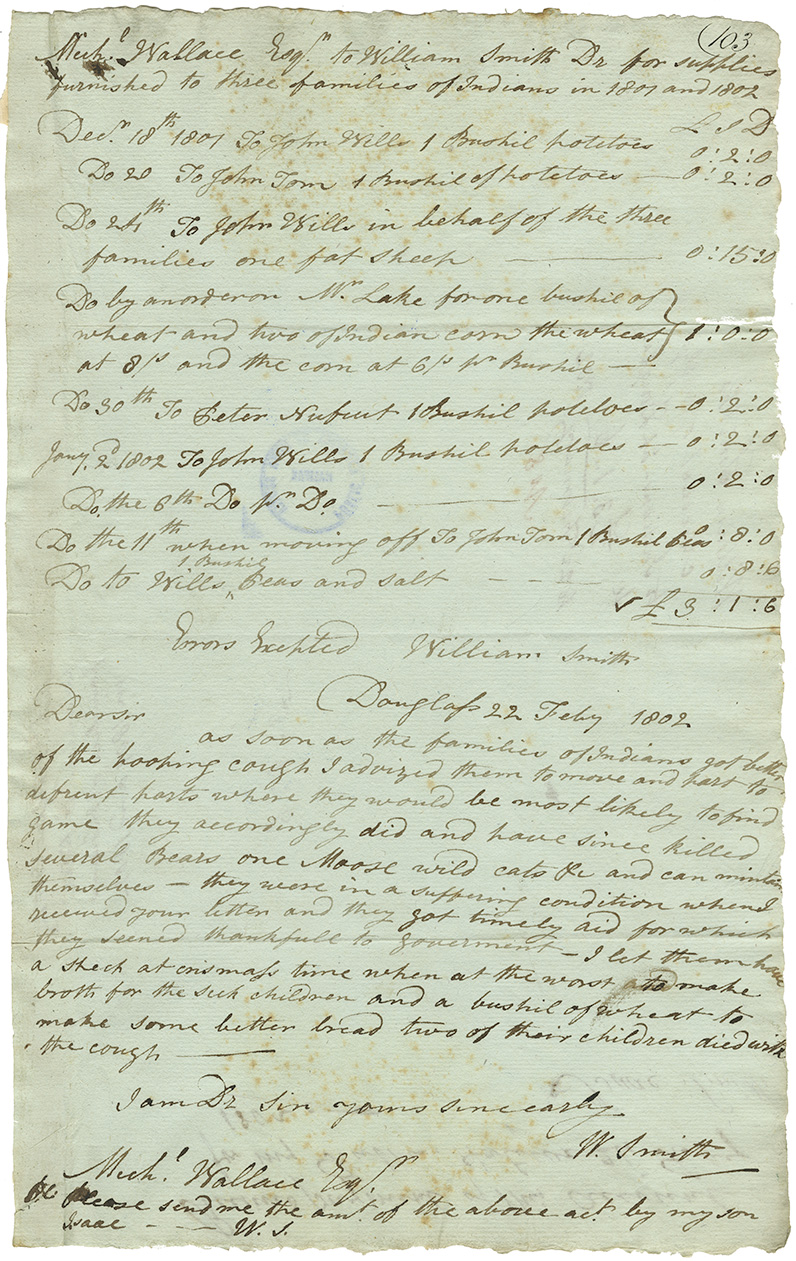 103
Mich.l Wallace Esq.r to William Smith Dr for supplies
furnished to three families of Indians in 1801 and 1802
£ S D
Dec.r 18th 1801 To John Wills 1 Bushil potetoes 0:2:0
Do 20 To John Tom 1 Bushil of potetoes — 0:2:0
Do 24th To John Wills in behalf of the three
families one fat sheep — 0:15:0
Do by an order on Mr. Lake for one bushil of
wheat and two of Indian corn the wheat 1:0:0
at 8/s and the corn at 6/s pr Bushil —
Do 30th To Peter 1 Bushil potetoes -- 0:2:0
Jany. 2d 1802 To John Wills 1 Bushil potetoes — 0:2:0
Do. the 6th Do pr. Do. — 0:2:0
Do the 11th when moving off To John Tom 1 Bushil Peas 0:8:0
Do to Wills 1 Bushil Peas and salt - - - 0:8:6
✓ £ 3:1:6
Errors Excepted William Smith
Douglass 22 Feby 1802
Dear sir
as soon as the families of Indians got better
of the hooping cough I advized them to move and part to
defrent parts where they would be most likely to find
game they accordingly did and have since killed
several Bears one Moose wild cats &c and can mintain
themselves — they were in a suffering condition when I
received your letter and they got timely aid for which
they seemed thankfull to goverment — I let them have
a sheep at crismass time when at the worst to make
broth for the sick children and a bushil of wheat to
make some better bread two of their children died with
the cough —
I am Dr sir yours sincearly
W. Smith
Mich.l Wallace Esq.r
please send me the amt. of the above act. by my son
Isaac - - - W. S.